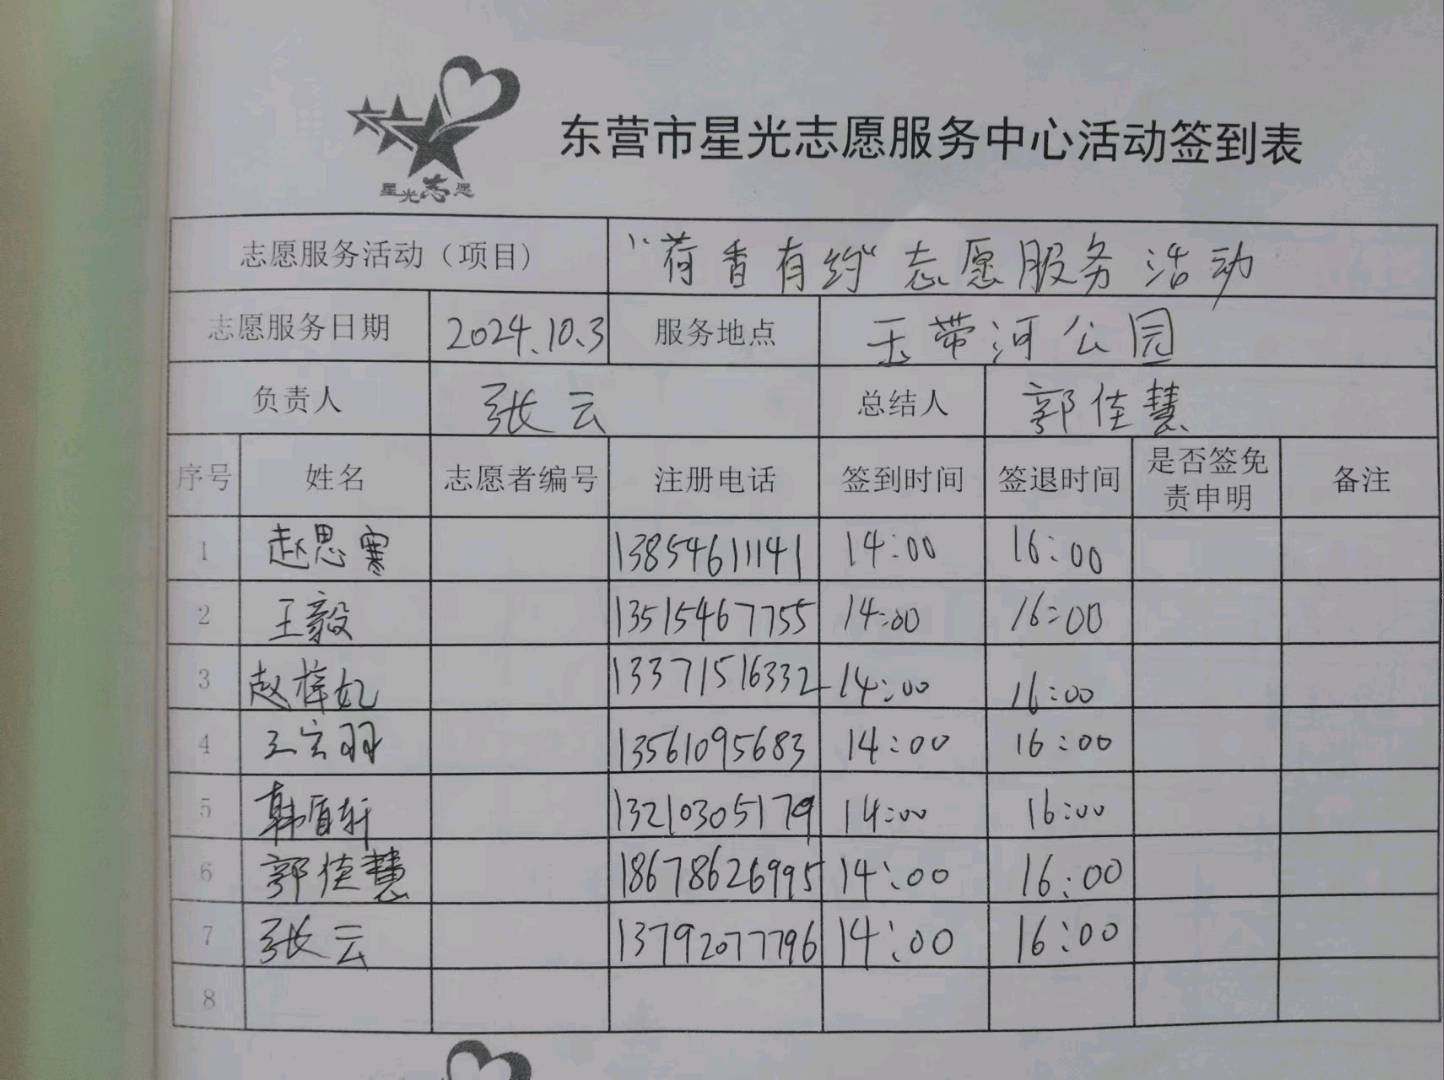 星光志愿
东营市星光志愿服务中心活动签到表
志愿服务活动（项目） “荷香有约”志愿服务活动
志愿服务日期 2024.10.3 服务地点 玉带河公园
负责人 张云 总结人 郭佳慧
序号 姓名 志愿者编号 注册电话 签到时间 签退时间 是否签免责申明 备注
1 赵思寒 13854611141 14:00 16:00
2 王毅 13515467755 14:00 16:00
3 赵梓妃 13371516332 14:00 16:00
4 王宏羽 13561095683 14:00 16:00
5 韩眉轩 13210305179 14:00 16:00
6 郭佳慧 18678626995 14:00 16:00
7 张云 13792077796 14:00 16:00
8